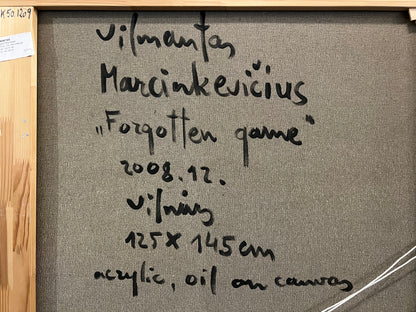 K50.1209
Vilmantas
Marcinkevičius
„Forgotten game“
2008.12.
Vilnius
125x145cm
acrylic, oil on canvas